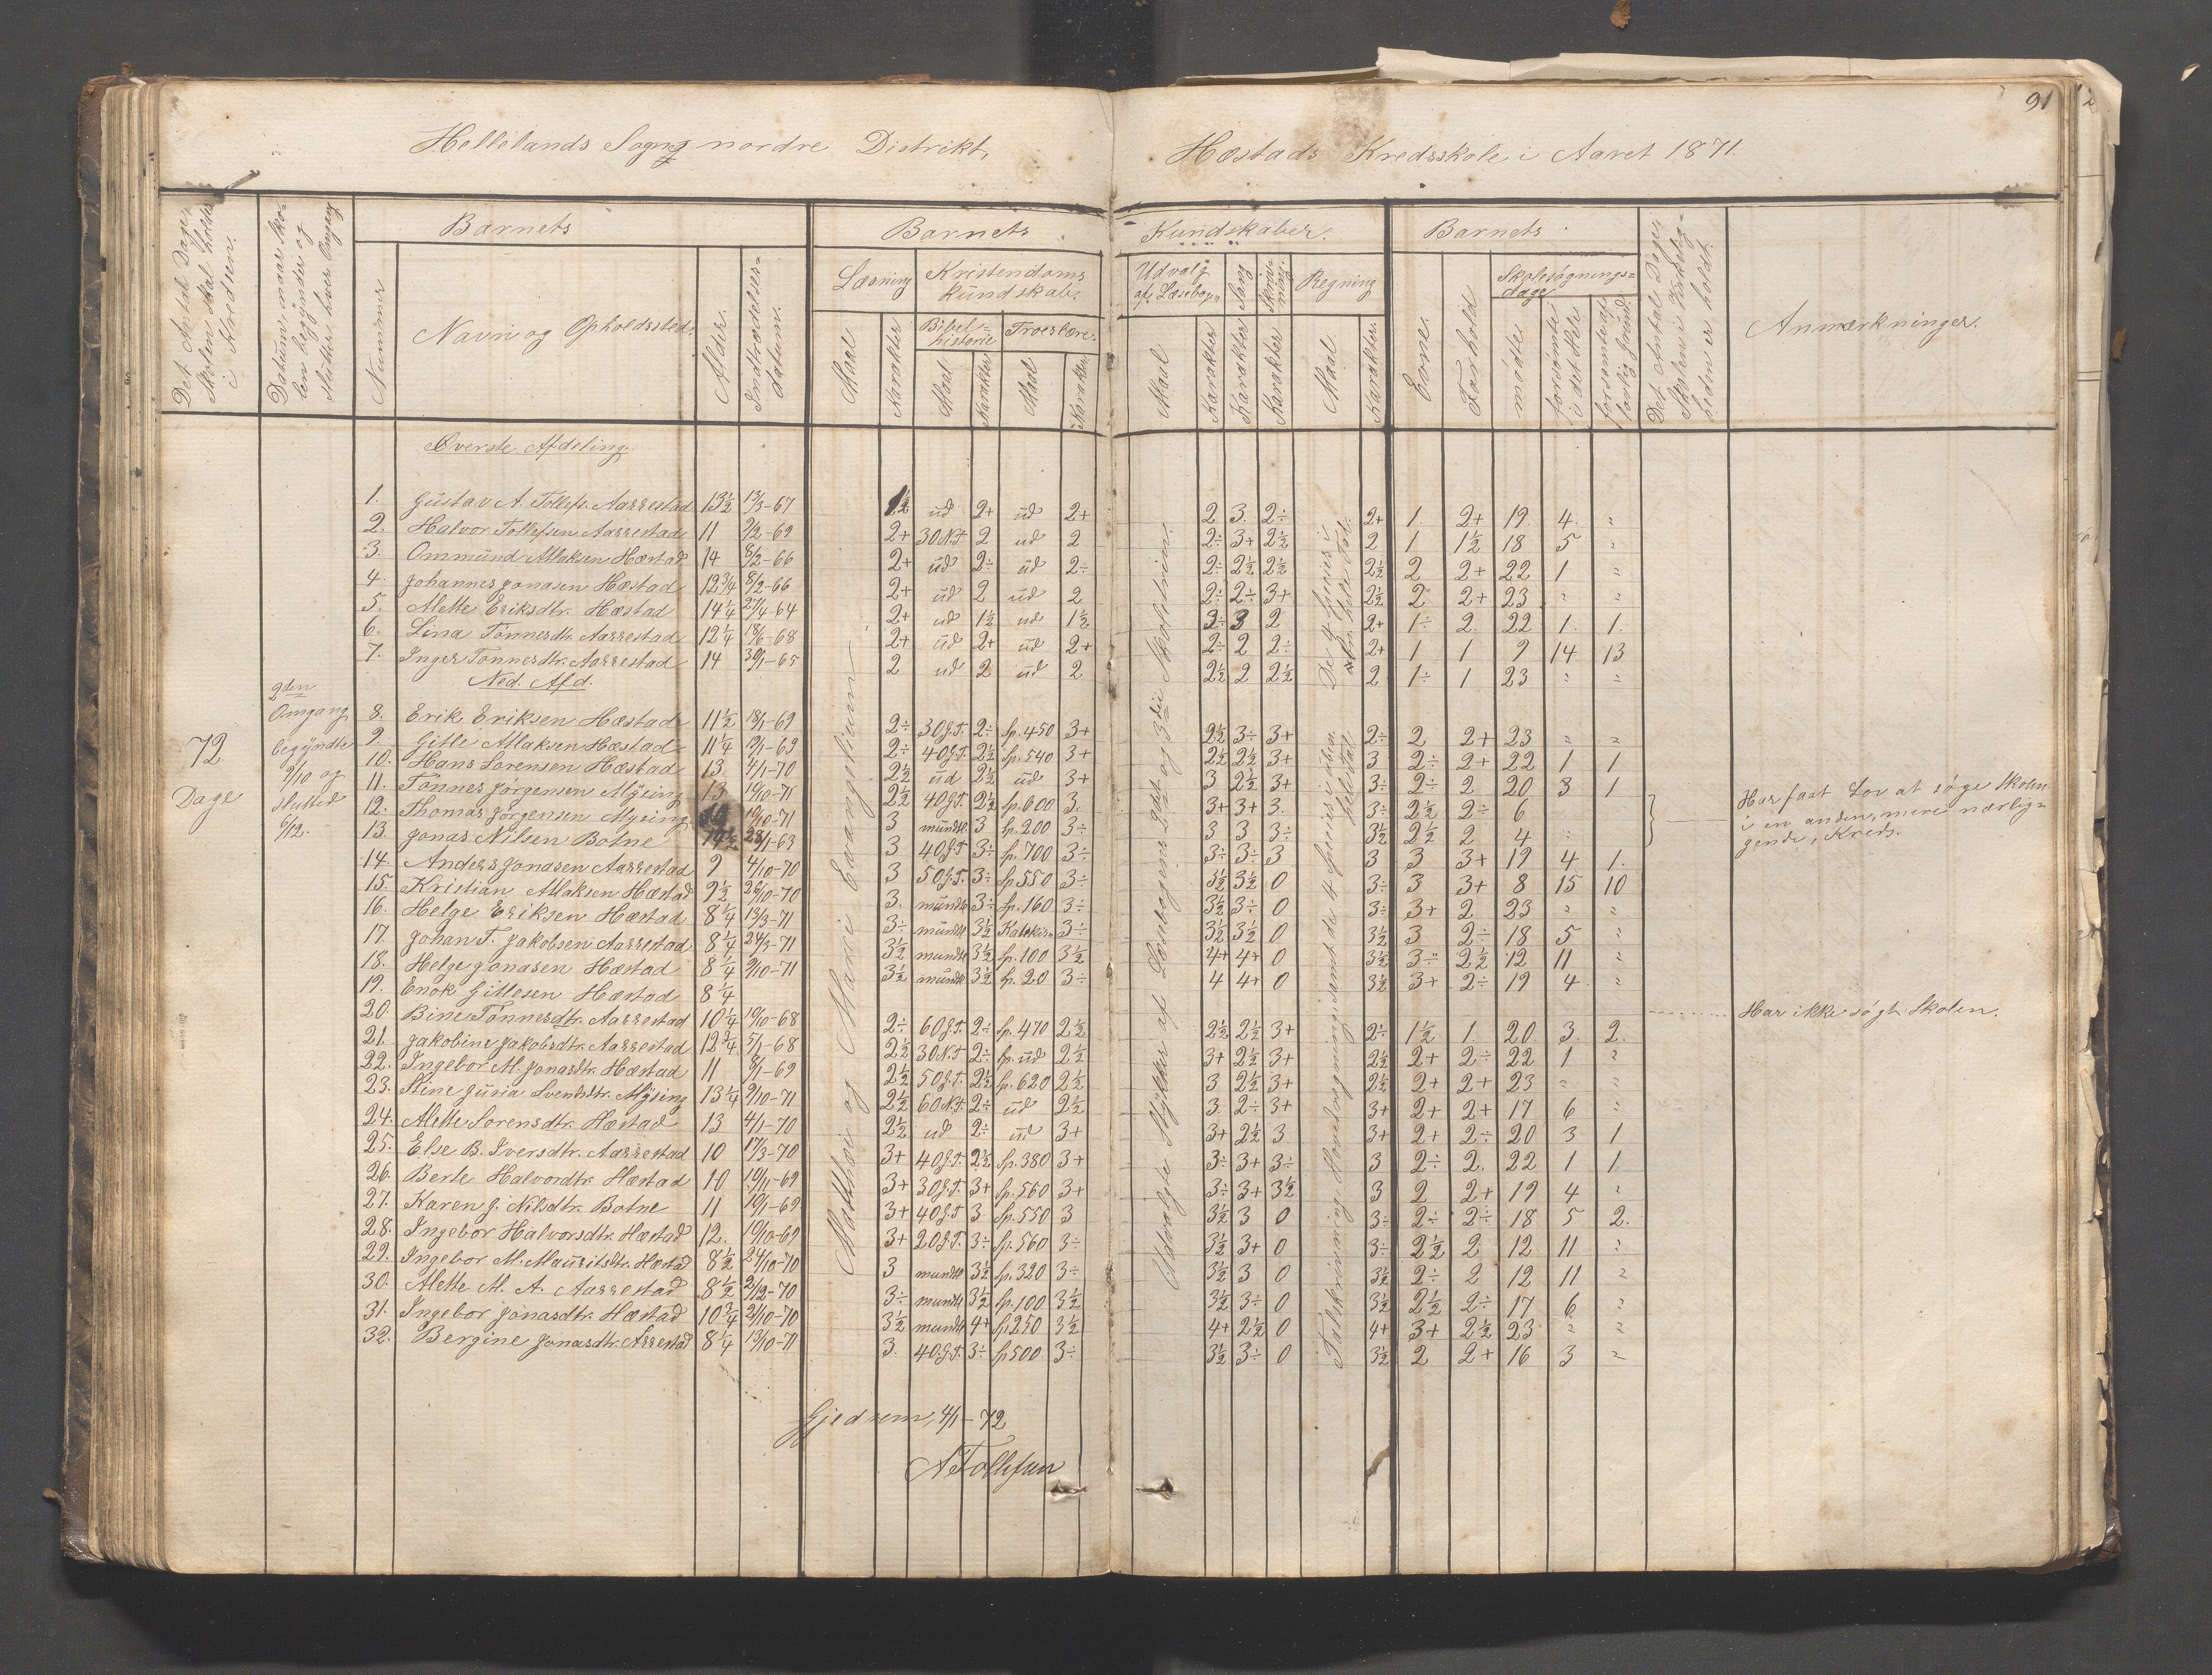 91
Hellelands Sogns nordre Distrikt,
Hæstads Kredsskole i Aaret 1871.
Det Antal Dage, Skolen skal holdes i Kredsen.
Datum, naar Skolen begynder og slutter hver Omgang
Barnets
Nummer
Navn og Opholdssted.
Alder.
Indtrædelsesdatum.
Barnets
Læsning
Kristendomskundskab.
Bibelhistorie
Troeslære.
Maal
Karakter
Maal
Karakter
Maal
Karakter
Kundskaber.
Udvalg af Læsebogen
Sang
Skrivning.
Regning
Maal
Karakter
Karakter
Karakter
Maal
Karakter.
Barnets
Evne.
Forhold
Skolesøgningsdage
mødte
forsømte i det Hele
forsømte af lovlig Grund
Det Antal Dage, Skolen i Virkeligheden er holdt.
Anmærkninger.
Øverste Afdeling.
1. Gustav A. Tollefs. Aarrestad 13½ 13/3-67 1½ ud 2+ ud 2+ 2 3. 2÷ 2+ 1. 2+ 19. 4. "
2. Halvor Tollefsen Aarrestad 11 2/2-69 2+ 30 N.T. 2 ud 2 2÷ 3+ 2½ 2 1 1½ 18 5 "
3. Ommund Atlaksen Hæstad 14 8/2-66 2+ ud 2÷ ud 2÷ 2÷ 2½ 2½ 2½ 2 2+ 22 1 "
4. Johannes Jonasen Hæstad 12¾ 8/2-66 2+ ud 2 ud 2 2÷ 2÷ 3+ 2½ 2 2+ 23 " "
5. Mette Eriksdtr. Hæstad 14¼ 27/4-64 2+ ud 1½ ud 1½ 2÷ 3 2 2+ 1÷ 2. 22 1. 1.
6. Lina Tønnesdtr. Aarrestad 12¼ 18/6-68 2+ ud 2+ ud 2+ 2÷ 2 2÷ 2+ 1 1 9 14 13
7. Inger Tønnesdtr. Aarrestad 14 30/1-65 2 ud 2 ud 2 2½ 2 2½ 2 1÷ 1 23 " "
Ned. Afd.
72 Dage
2den Omgang begyndte 9/10 og slutted 6/12.
8. Erik Eriksen Hæstad 11½ 18/1-69 2÷ 30 G.T. 2÷ Sp. 450 3+ 2½ 3÷ 3+ 2÷ 2 2+ 23 " "
9. Gitle Atlaksen Hæstad 11¼ 19/1-69 2÷ 40 G.T. 2½ Sp. 540 3+ 2½ 2½ 3+ 3 2÷ 2+ 22 1 1
10. Hans Sørensen Hæstad 13. 4/1-70 2½ ud 2½ ud 3+ 3 2½ 3+ 3÷ 2÷ 2 20 3 1
11. Tønnes Jørgensen Mysing 13 19/10-71 2½ 40 G.T. 2½ Sp. 600 3. 3+ 3+ 3. 3÷ 2½ 2÷ 6
12. Thomas Jørgensen Mysing 19/10-71 3 mundtl. 3 Sp. 200 3÷ 3 3 3÷ 3½ 2½ 2 4 "
Har faat Lov at søge Skolen i en anden, mere nærliggende, Kreds.
13. Jonas Nilsen Botne 14½ 28/1-63 3 40 G.T. 3÷ Sp. 700 3÷ 3÷ 3÷ 3 3 3 3+ 19 4 1.
14. Anders Jonasen Aarrestad 9 4/10-70 3 50 G.T. 3÷ Sp. 550 3÷ 3½ 3½ 0 3÷ 3 3+ 8 15 10
15. Kristian Atlaksen Hæstad 9½ 26/10-70 3. mundtl. 3÷ Sp. 160 3÷ 3½ 3÷ 0 3÷ 3+ 2 23 " "
16. Helge Eriksen Hæstad 8¼ 13/3-71 3÷ mundtl. 3½ Katekism 3÷ 3½ 3½ 0 3½ 3 2÷ 18 5 "
17. Johan T. Jakobsen Aarrestad 8¼ 24/3-71 3½ mundtl 3½ Sp. 100 3½ 4+ 4+ 0 3½ 3÷ 2½ 12 11 "
18. Helge Jonasen Hæstad 8¼ 9/10-71 3½ mundtl 3½ Sp. 20 3÷ 4 4+ 0 3½ 3+ 2÷ 19 4 "
19. Enok Gitlesen Hæstad 8¼ Har ikke søgt Skolen.
20. Bine Tønnesdtr. Aarrestad 10¼ 19/10-68 2÷ 60 G.T. 2÷ Sp. 470 2½ 2½ 2½ 3+ 2÷ 1½ 1. 20. 3. 2.
21. Jakobine Jakobsdtr. Aarrestad 12¾ 5/1-68 2½ 30 N.T. 2÷ Sp. ud 2½ 3+ 2½ 3+ 2½ 2+ 2÷ 22 1 "
22. Ingebor M. Jonasdtr. Hæstad 11 8/1-69 2½ 50 G.T. 2½ Sp. 620 2½ 3 2½ 3+ 2½ 2+ 2+ 23 " "
23. Stine Guria Svendsdtr. Mysing 13¼ 9/10-71 2½ 60 N.T. 2÷ ud 2½ 3. 2÷ 3+ 3+ 2+ 2+ 17 6 "
24. Mette Sørensdtr. Hæstad 13 4/1-70 2½ ud 2÷ ud 3+ 3+ 2½ 3 3+ 2+ 2÷ 20 3 1
25. Else B. Iversdtr. Aarrestad 10 17/3-70 3+ 40 G.T. 2½ Sp. 380 3+ 3÷ 3+ 3÷ 3 2÷ 2. 22 1 1
26. Berte Halvordtr. Hæstad 10 19/11-69 3+ 30 G.T. 3+ Sp. 560 3+ 3÷ 3+ 3½ 3 2 2+ 19 4 "
27. Karen G. Nilsdtr. Botne 11 19/1-69 3+ 40 G.T 3 Sp. 550 3 3½ 3 0 3÷ 2÷ 2÷ 18 5 2.
28. Ingebor Halvorsdtr. Hæstad 12. 19/10-69 3+ 20 G.T. 3÷ Sp. 560 3÷ 3½ 3+ 0 3÷ 2½ 2 12 11 "
29. Ingebor M. Mauritsdtr. Hæstad 8½ 24/10-70 3 mundtl 3½ Sp. 320 3÷ 3½ 3 0 3½ 2÷ 2 12 11 "
30. Mette M. A. Aarrestad 8½ 2/12-70 3÷ mundtl 3½ Sp. 100 3½ 3½ 3÷ 0 3½ 2½ 2÷ 17 6 "
31. Ingebor Jonasdtr. Hæstad 10¾ 21/10-70 3½ mundtl 4+ Sp 250 3½ 4+ 2½ 0 4+ 3+ 2½ 23 " "
32. Bergine Jonasdtr. Aarrestad 8¼ 13/10-71 3. 40. G.T. 3÷ Sp 500 3÷ 3½ 3÷ 0 3½ 2 2+ 16 3 "
Matthæi og Marci Evangelium
Udvalgte Stykker af Læsebogens 2det og 3die Skoletrin.
De 4 Species i hele Tal.
Talskrivning, Hovedregning, samt de 4 Species i ubenævnte hele Tal
Gjedrem, 4/1-72
A Tollefsen